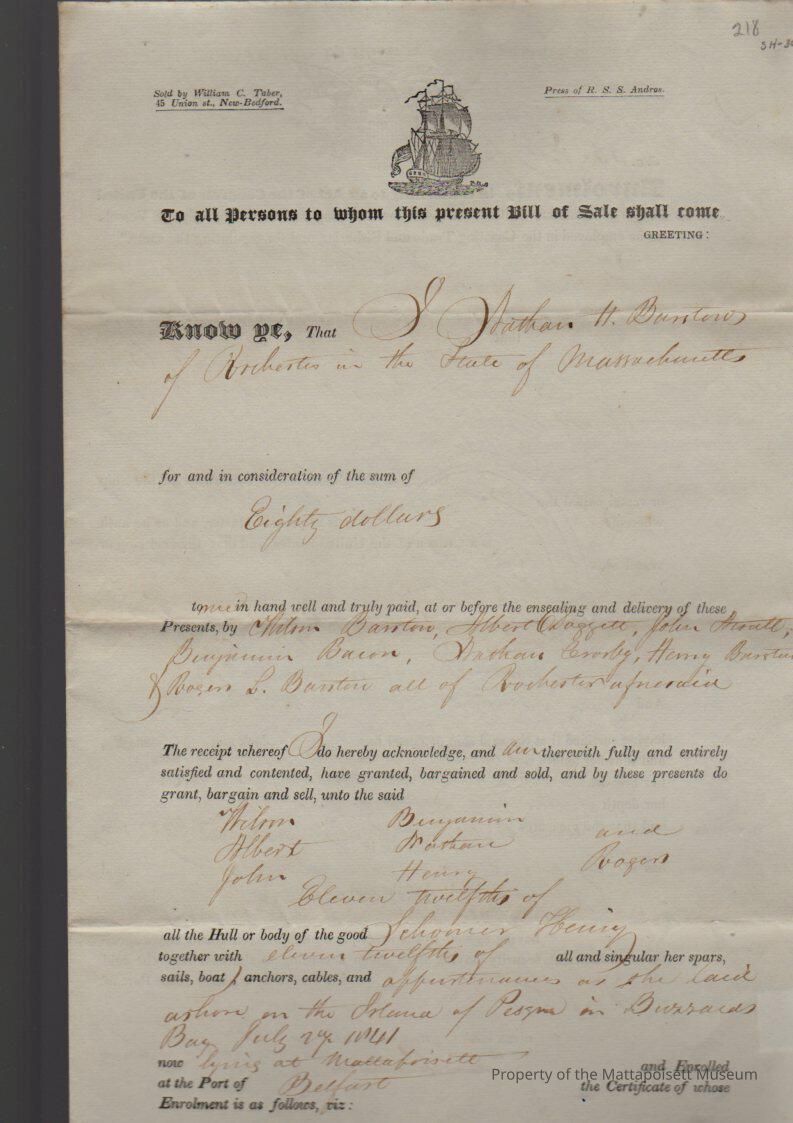 218
SH-
Sold by William C. Taber,
45 Union st., New-Bedford.
Press of R. S. S. Andros.
To all Persons to whom this present Bill of Sale shall come
GREETING:
Know ye, That I Nathan H. Barstow
of Rochester in the State of Massachusetts
for and in consideration of the sum of
Eighty dollars
to me in hand well and truly paid, at or before the ensealing and delivery of these
Presents, by Wilson Barstow, Albert Daggett, John
Benjamin Bacon, Nathan Crosby, Henry Barstow
& Rogers L. Barstow all of Rochester aforesaid
The receipt whereof I do hereby acknowledge, and am therewith fully and entirely
satisfied and contented, have granted, bargained and sold, and by these presents do
grant, bargain and sell, unto the said
Wilson Benjamin
Albert Nathan and
John Henry Rogers
Eleven twelfths of
all the Hull or body of the good Schooner Henry
together with eleven twelfths of all and singular her spars,
sails, boat, anchors, cables, and appurtenances as she laid
ashore on the Island of in Buzzards
Bay July 1841
now lying at Mattapoisett and Enrolled
at the Port of Belfast the Certificate of whose
Enrolment is as follows, viz:
Property of the Mattapoisett Museum